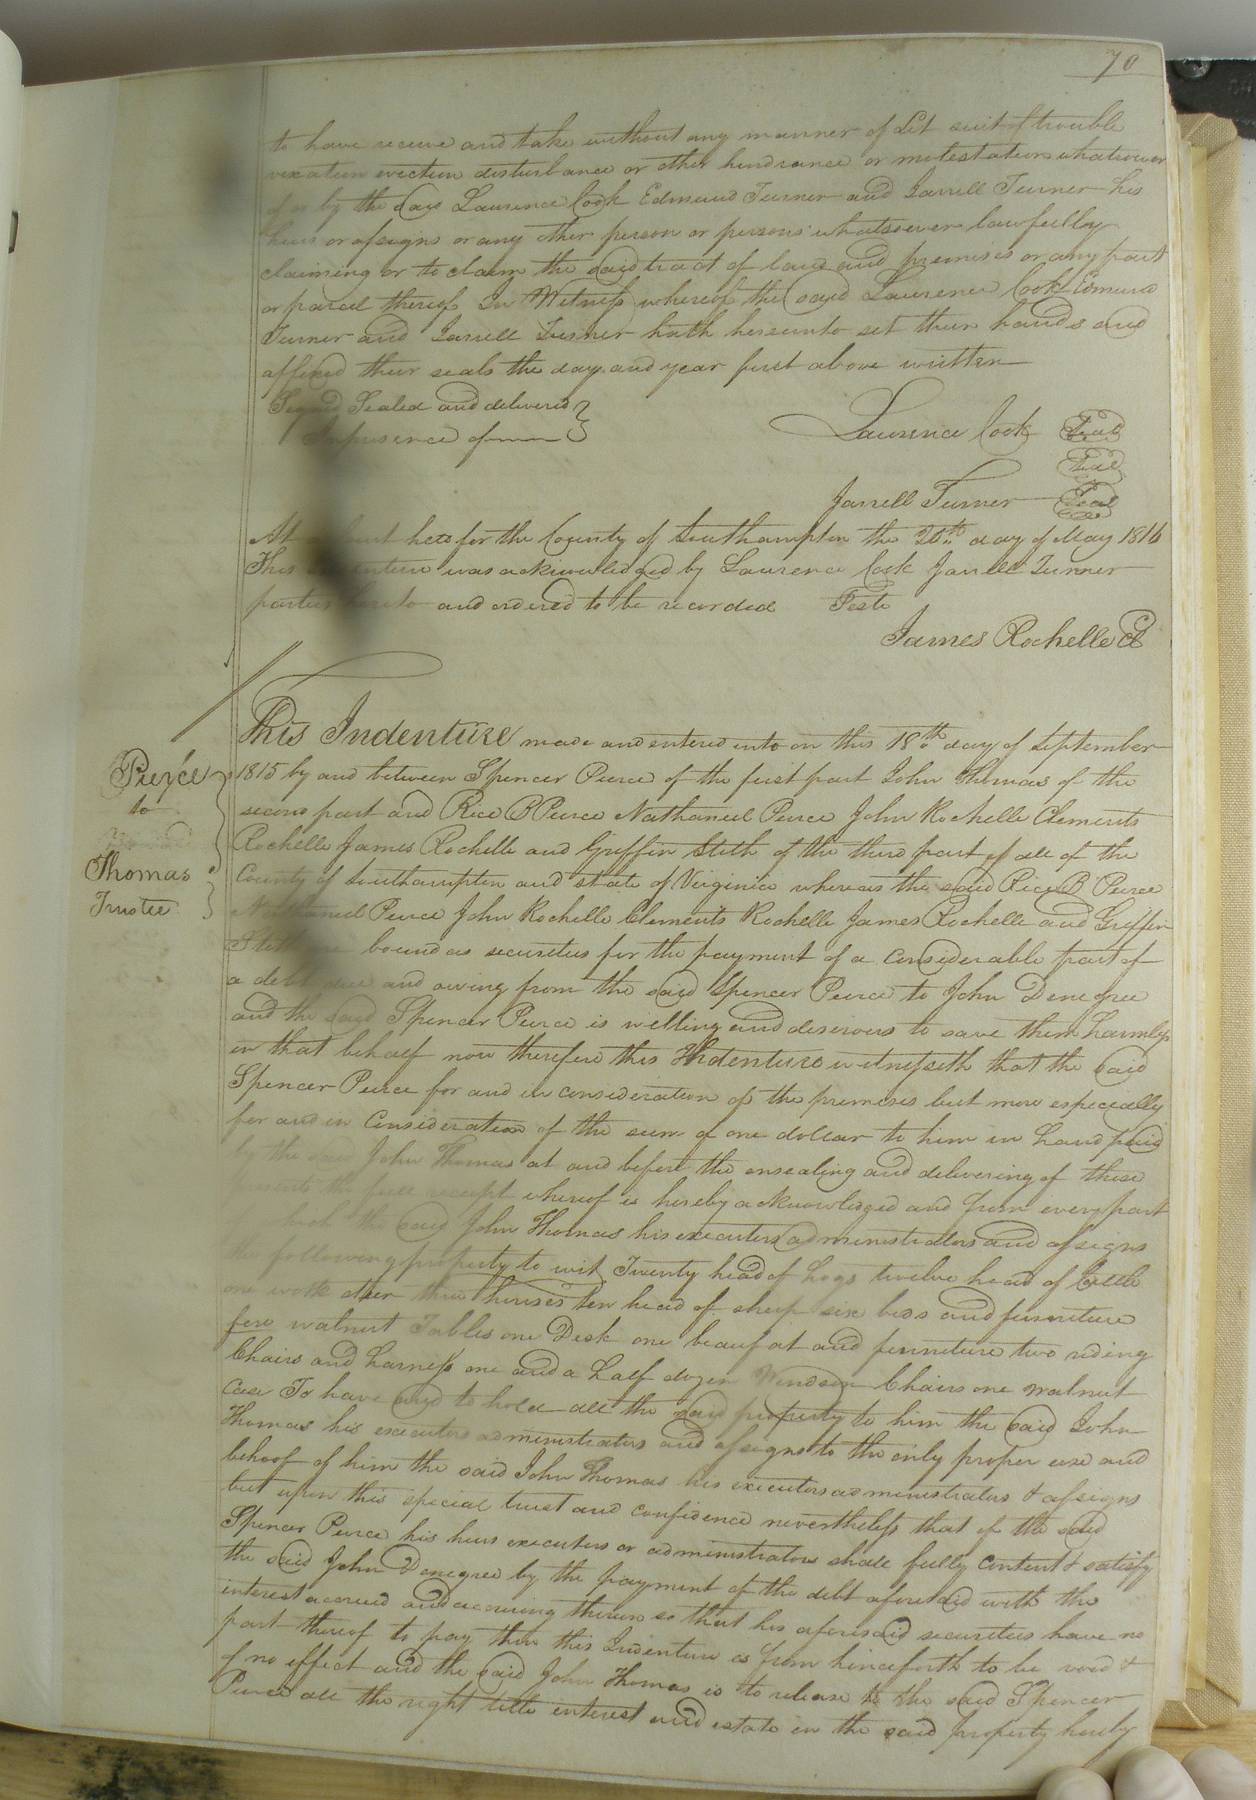 70
to have receive and take without any manner of Let suit of trouble
vexation eviction disturbance or other hindrance or molestation whatsoever
of or by the said Laurence Cook Edmund Turner and Jarrell Turner his
heirs or assigns or any other person or persons whatsoever lawfully
claiming or to claim the said tract of land and premises or any part
or parcel thereof In Witness whereof the said Laurence Cook Edmund
Turner and Jarrell Turner hath hereunto set their hands and
affixed their seals the day and year first above written
Signed Sealed and delivered
In presence of
Laurence Cook Seal
Seal
Jarrell Turner Seal
At a Court held for the County of Southampton the 20th day of May 1816
This Indenture was acknowledged by Laurence Cook Jarrell Turner
parties hereto and ordered to be recorded Teste
James Rochelle Cl
This Indenture made and entered into on this 18th day of September
Peirce
to
Thomas
Trustee
1815 by and between Spencer Pierce of the first part John Thomas of the
second part and Rice B Peirce Nathaniel Peirce John Rochelle Clements
Rochelle James Rochelle and Griffin Stith of the third part of all of the
County of Southampton and state of Virginia whereas the said Rice B Peirce
Nathaniel Peirce John Rochelle Clements Rochelle James Rochelle and Griffin
Stith are bound as securities for the payment of a considerable part of
a debt due and owing from the said Spencer Peirce to John Denegree
and the said Spencer Peirce is willing and desirous to save them harmless
in that behalf now therefore this Indenture witnesseth that the said
Spencer Peirce for and in consideration of the premises but more especially
for and in Consideration of the sum of one dollar to him in hand paid
by the said John Thomas at and before the ensealing and delivering of these
presents the full receipt whereof is hereby acknowledged and from every part
the said John Thomas his executors administrators and assigns
following property to wit, Twenty head of hogs twelve head of Cattle
one work steer three horses ten head of sheep six beds and furniture
four walnut Tables one Desk one beaufat and furniture two riding
Chairs and harness one and a half dozen Windsor Chairs one walnut
Case To have and to hold all the said property to him the said John
Thomas his executors administrators and assigns to the only proper use and
behoof of him the said John Thomas his executors administrators & assigns
but upon this special trust and confidence nevertheless that if the said
Spencer Peirce his heirs executors or administrators shall fully content & satisfy
the said John Denegree by the payment of the debt aforesaid with the
interest accrued and accruing thereon so that his aforesaid securities have no
part thereof to pay then this Indenture is from hinceforth to be void &
of no effect and the said John Thomas is to release to the said Spencer
Peirce all the right title interest and estate in the said property hereby